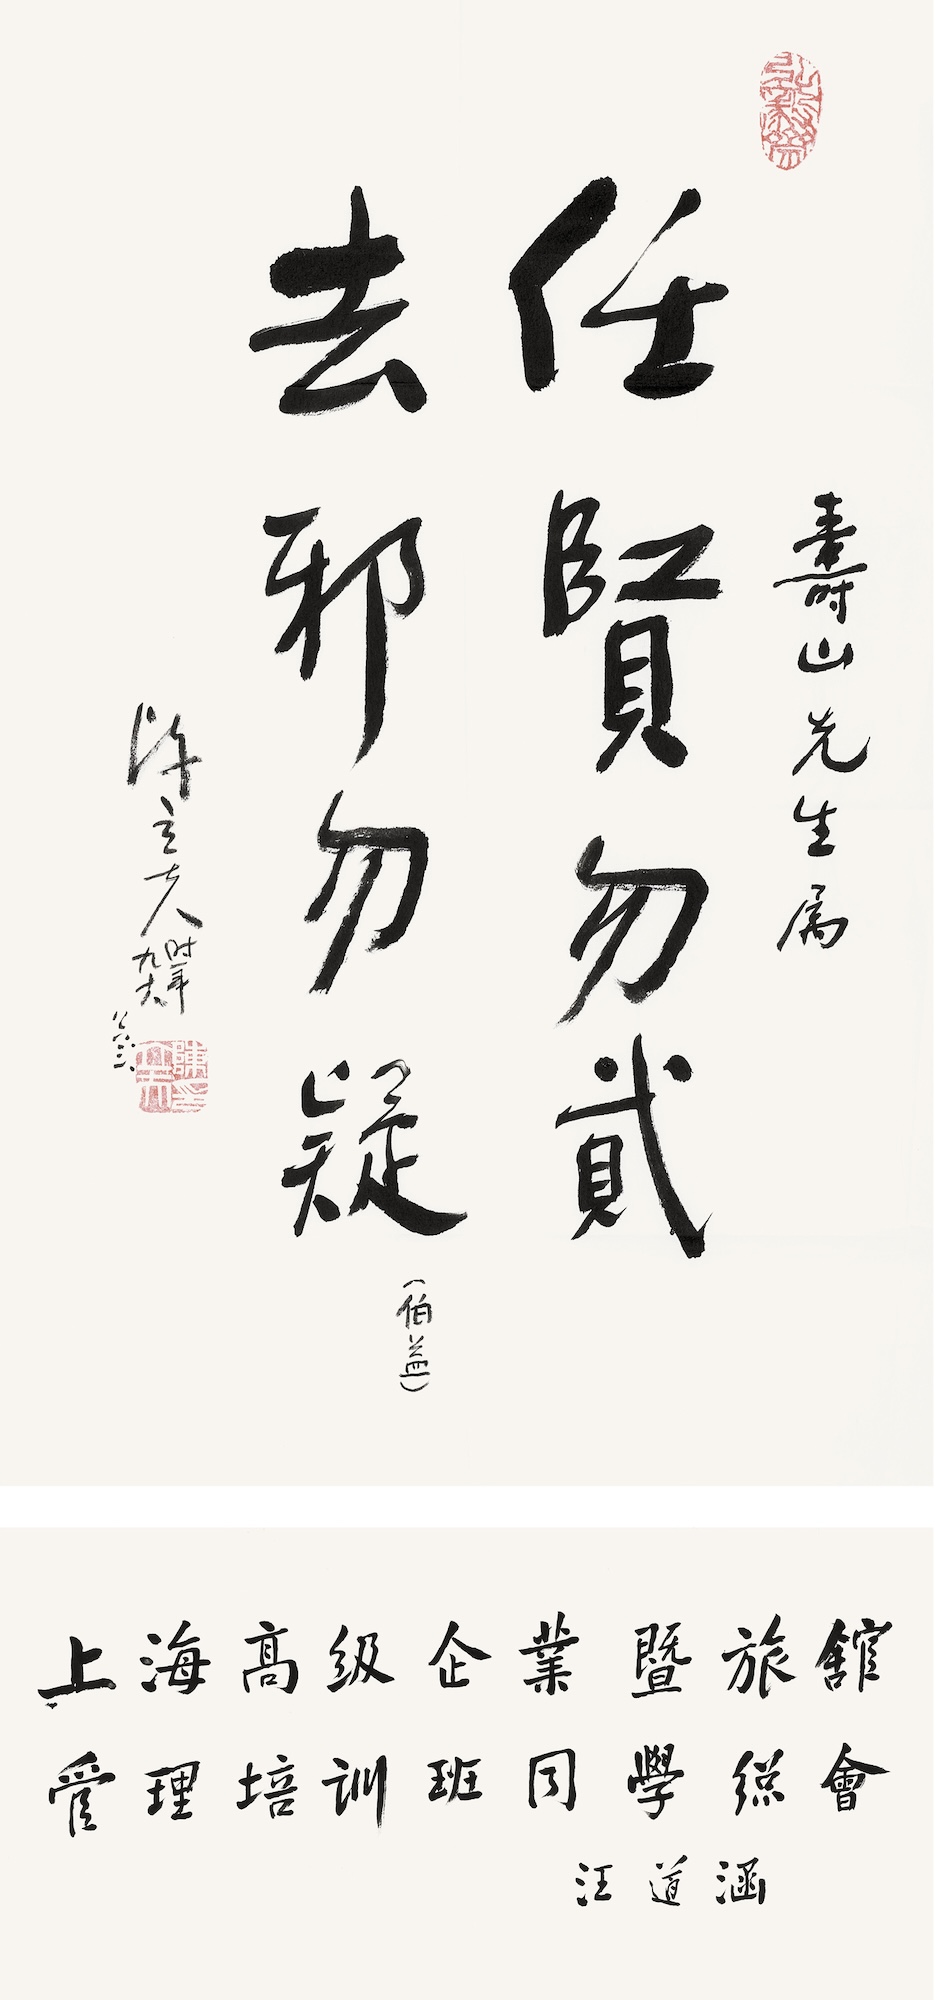 壽山先生屬
任賢勿貳
去邪勿疑
（伯益）
陳立夫
時年
九六
陳立夫印
上海高级企業暨旅舘
管理培训班同學総會
汪道涵